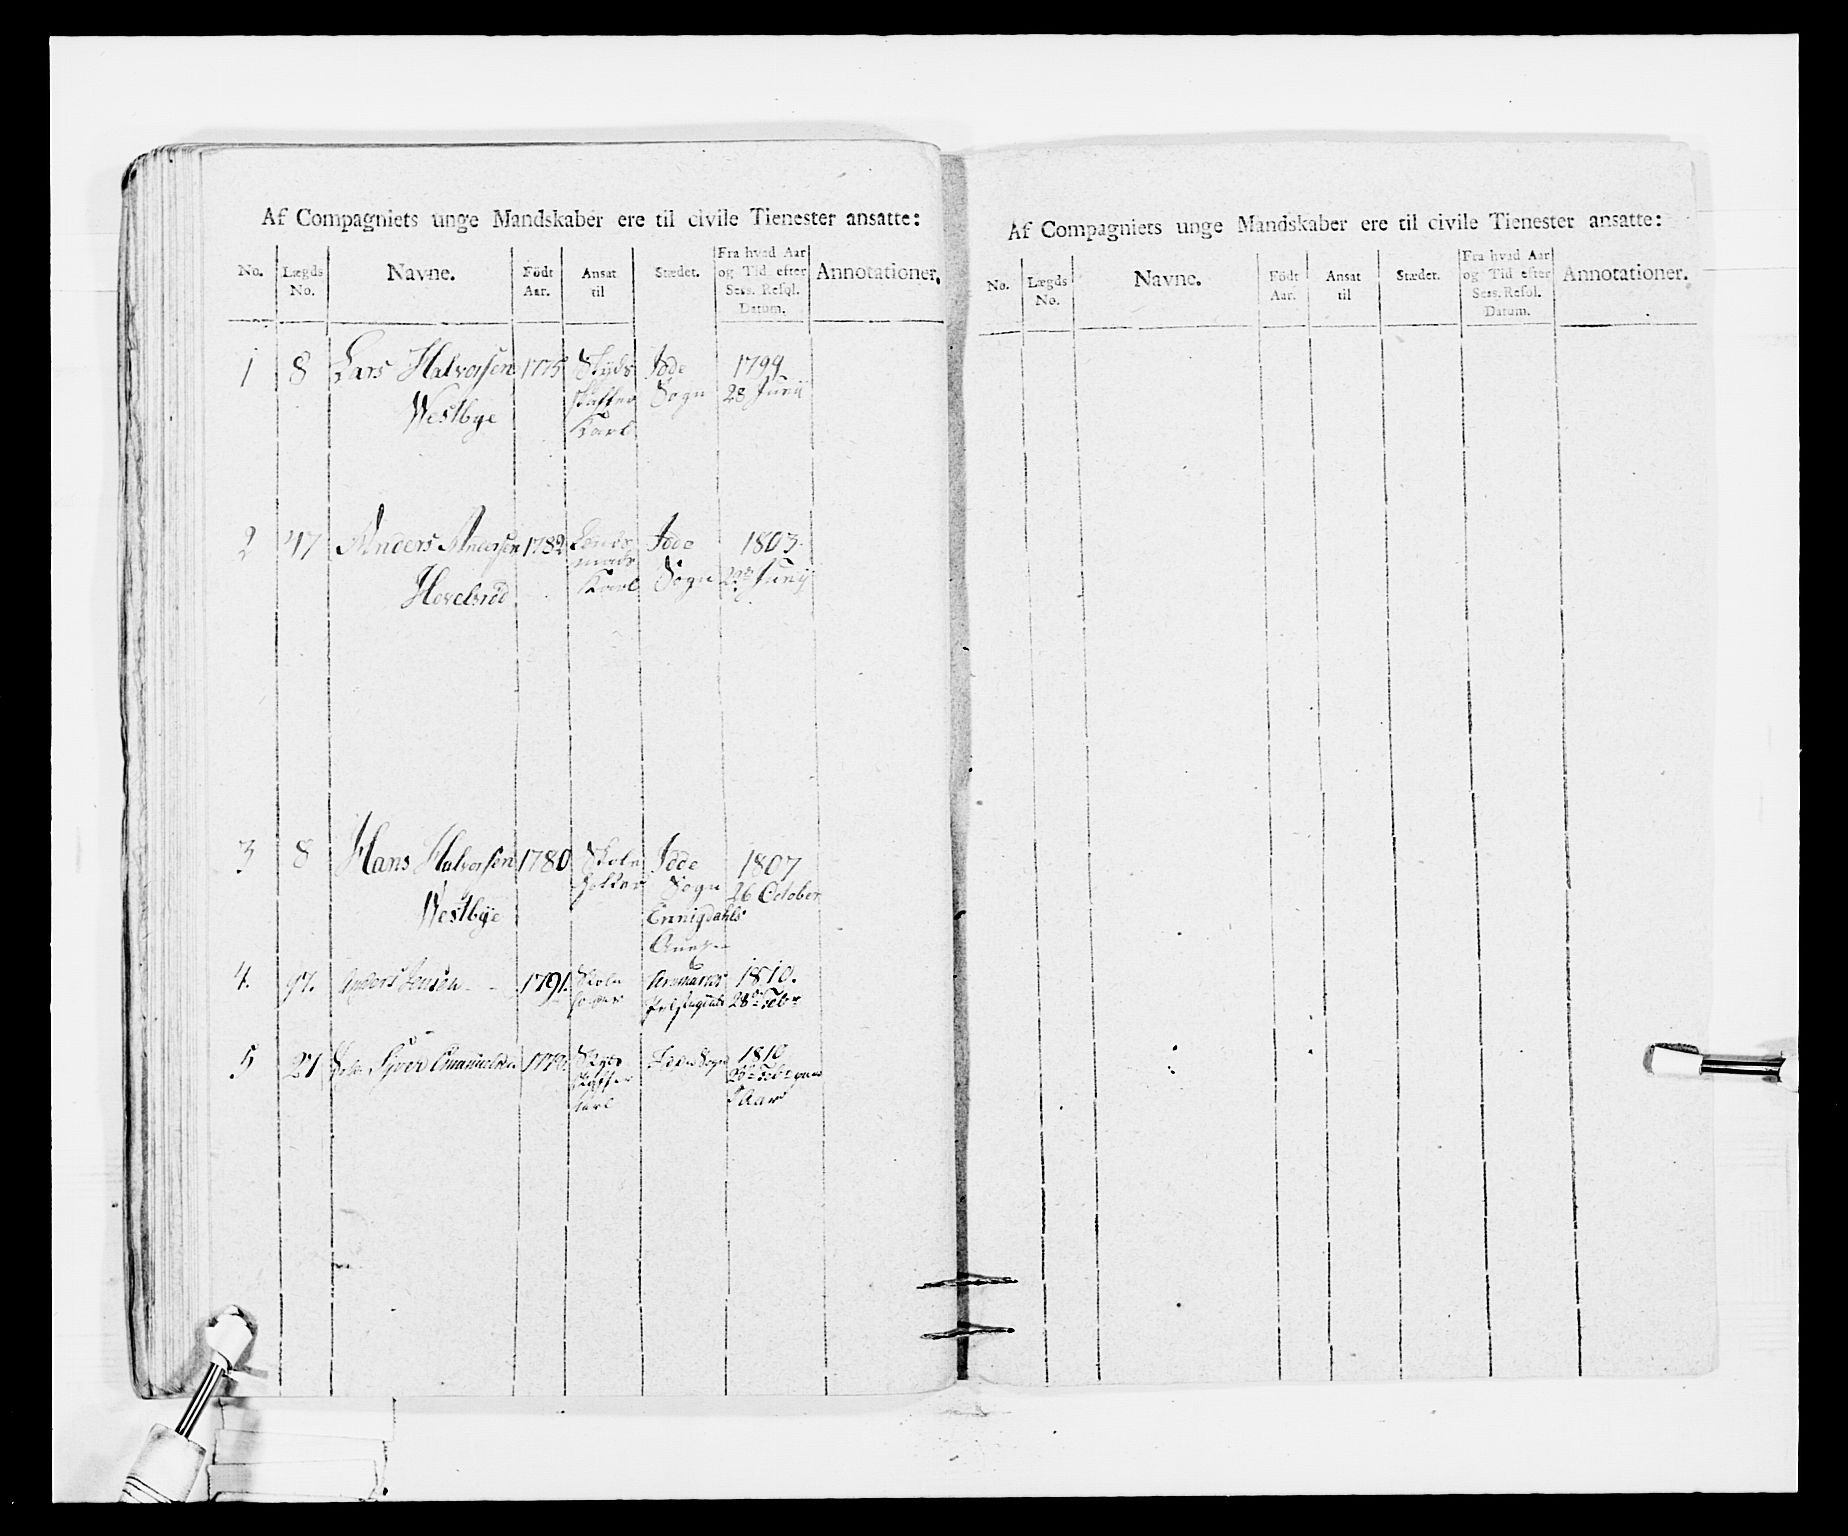 Af Compagniets unge Mandskaber ere til civile Tienester ansatte:
No. Lægds No. Navne. Födt Aar. Ansat til Stædet. Fra hvad Aar og Tid efter Sess. Resol. Datum. Annotationer.
1 8 Lars Halvorsen 1775 Skyds Idde 1799
Westbye skaffer Sogn 28 Junij
Karl
2 47 Anders Andersen 1782 Lends Idde 1803
mads Sogn Junij
Karl
3 8 Hans Halvorsen 1780 Skole Idde 1807
Westbye holder Sogn 26 October
Ennigdahls
4. 97. Anders Jensen 1791. Skole 1810.
28de Febr
5 27 Syver 1810
Skyds Sogn
skaffer
karl Aar
Af Compagniets unge Mandskaber ere til civile Tienester ansatte:
No. Lægds No. Navne. Födt Aar. Ansat til Stædet. Fra hvad Aar og Tid efter Sess. Resol. Datum. Annotationer.